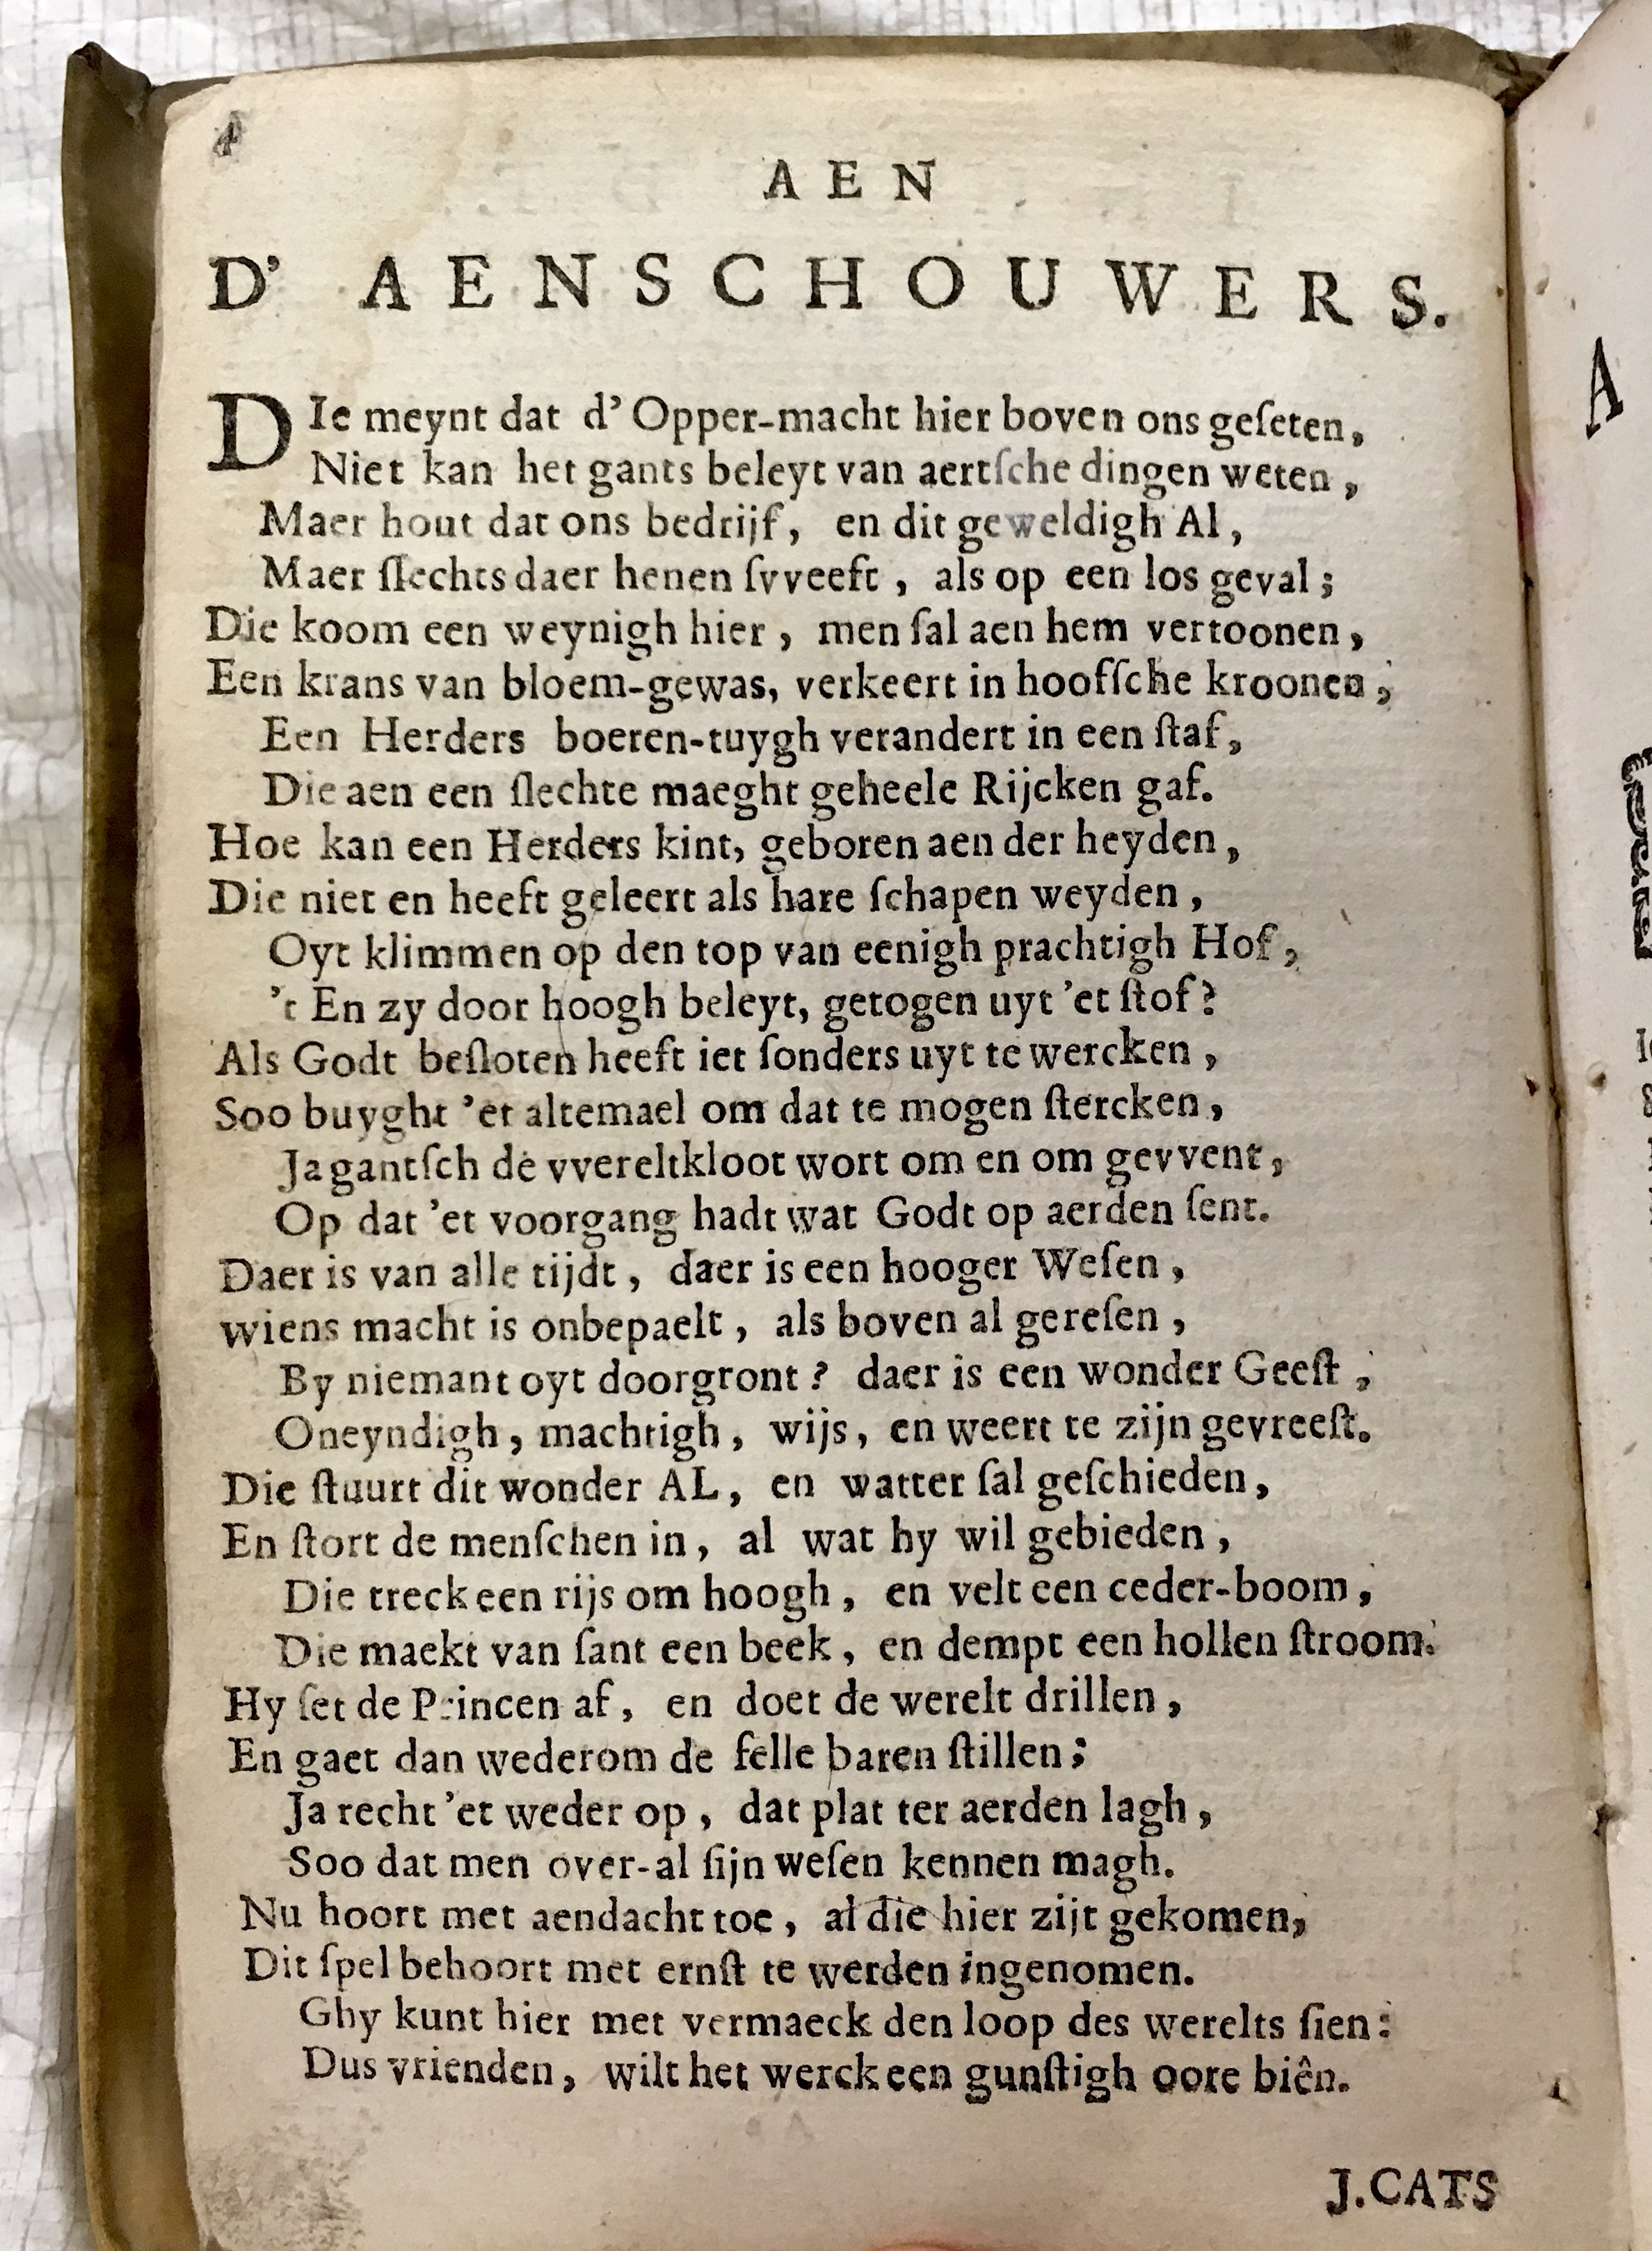 4
AEN
D' AENSCHOUWERS.
DIe meynt dat d' Opper-macht hier boven ons geſeten,
Niet kan het gants beleyt van aertſche dingen weten,
Maer hout dat ons bedrijf, en dit geweldigh Al,
Maer ſlechts daer henen ſvveeft, als op een los geval;
Die koom een weynigh hier, men ſal aen hem vertoonen,
Een krans van bloem-gewas, verkeert in hoofſche kroonen,
Een Herders boeren-tuygh verandert in een ſtaf,
Die aen een ſlechte maeght geheele Rijcken gaf.
Hoe kan een Herders kint, geboren aen der heyden,
Die niet en heeft geleert als hare ſchapen weyden,
Oyt klimmen op den top van eenigh prachtigh Hof,
't En zy door hoogh beleyt, getogen uyt 'et ſtof?
Als Godt beſloten heeft iet ſonders uyt te wercken,
Soo buyght 'et altemael om dat te mogen ſtercken,
Ja gantſch de vvereltkloot wort om en om gevvent,
Op dat 'et voorgang hadt wat Godt op aerden ſent.
Daer is van alle tijdt, daer is een hooger Weſen,
wiens macht is onbepaelt, als boven al gereſen,
By niemant oyt doorgront? daer is een wonder Geeſt,
Oneyndigh, machtigh, wijs, en weert te zijn gevreeſt.
Die ſtuurt dit wonder AL, en watter ſal geſchieden,
En ſtort de menſchen in, al wat hy wil gebieden,
Die treck een rijs om hoogh, en velt een ceder-boom,
Die maekt van ſant een beek, en dempt een hollen ſtroom.
Hy ſet de Princen af, en doet de werelt drillen,
En gaet dan wederom de felle baren ſtillen;
Ja recht 'et weder op, dat plat ter aerden lagh,
Soo dat men over-al ſijn weſen kennen magh.
Nu hoort met aendacht toe, al die hier zijt gekomen,
Dit ſpel behoort met ernſt te werden ingenomen.
Ghy kunt hier met vermaeck den loop des werelts ſien:
Dus vrienden, wilt het werck een gunſtigh oore biên.
J. CATS
A